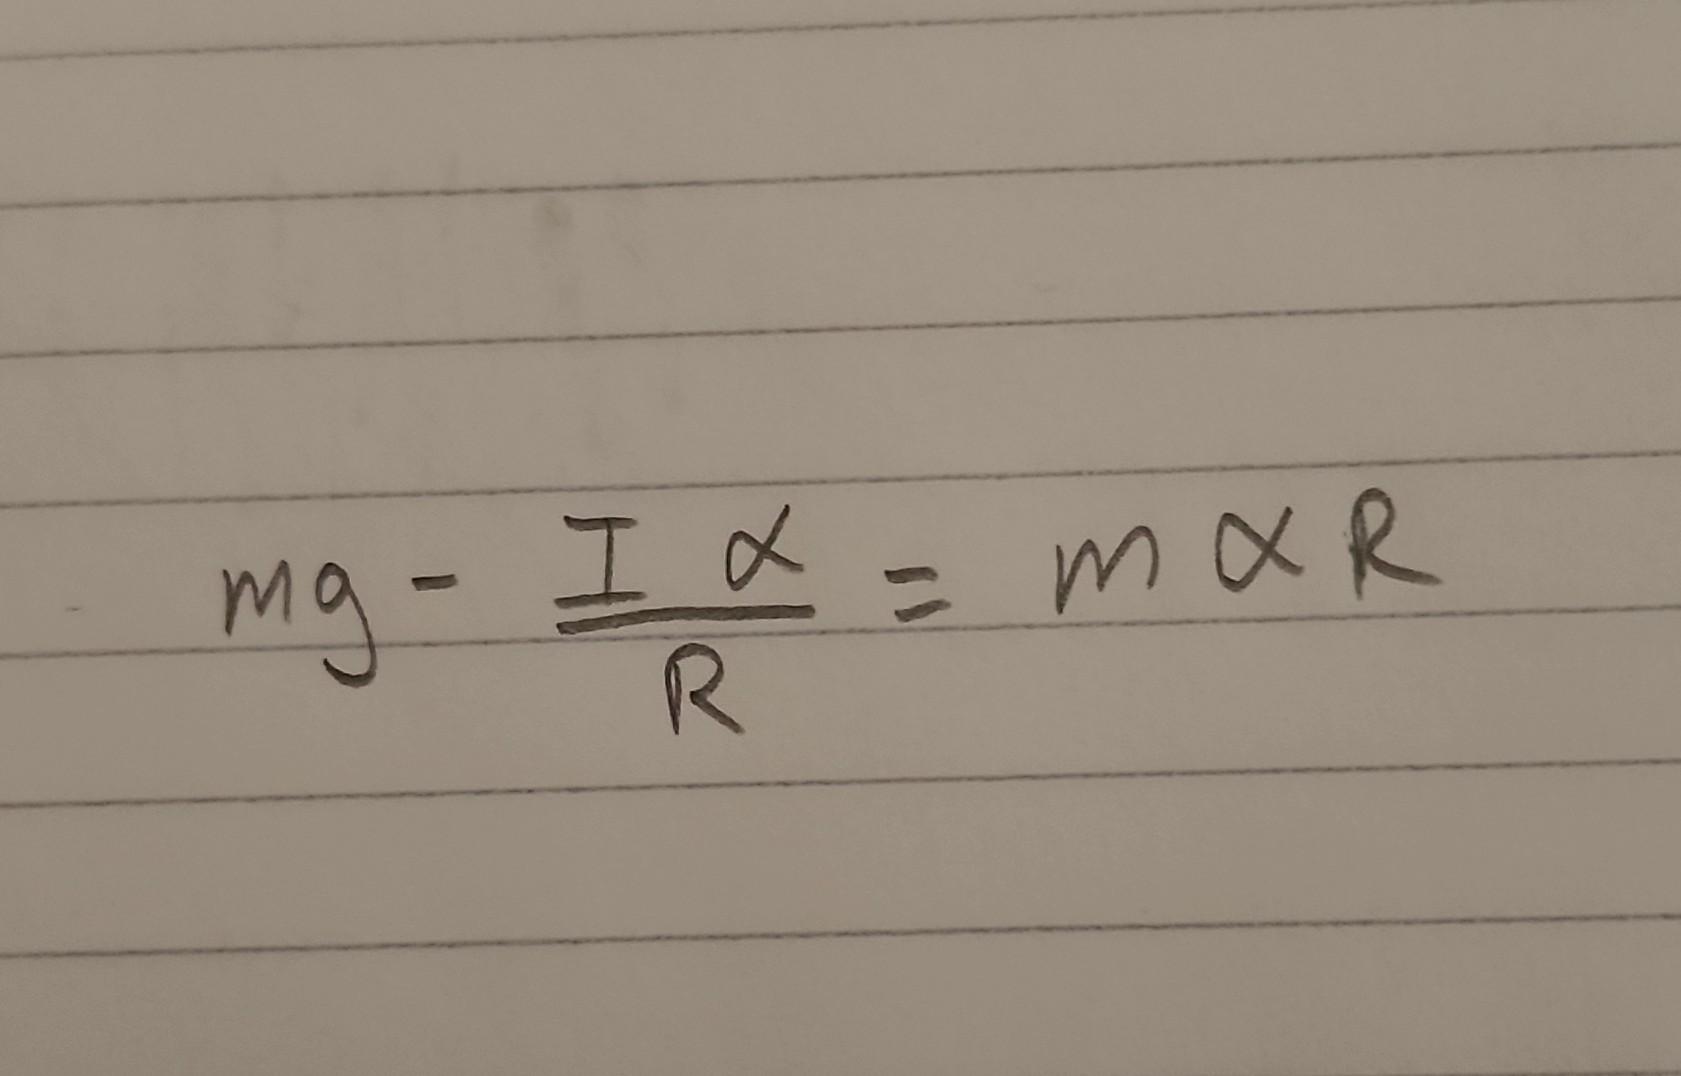 mg - \frac{I α}{R} = m α R